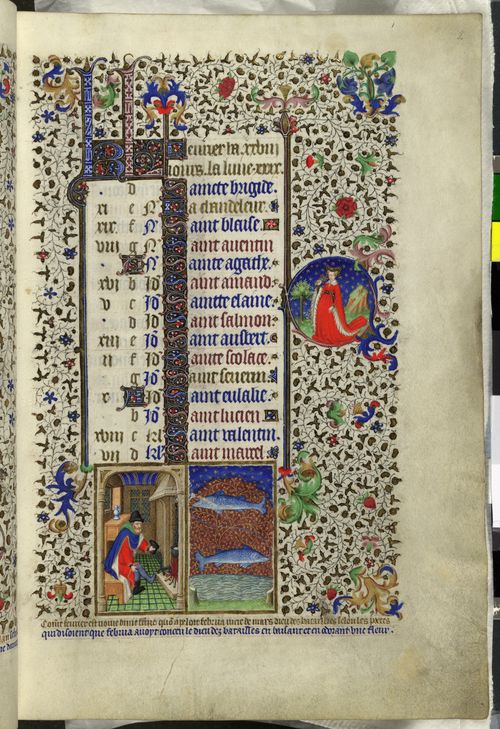 2
KL Feurier a .xxviii.
iours. la lune .xxx.
d Saincte brigide.
xi e N La chandeleur.
xix f N Saint blaise.
viii g N Saint auentin
A N Sainte agathe.
xvi b Id Saint amand.
v c Id Saintte elaine.
d Id Saint salmon.
xiii e Id Saint ausbert.
ii f Id Sainte scolace.
g Id Saint seuerin.
x A Id Saint eulalie.
b Id Saint lucien.
xviii c kl Saint valentin.
vii d kl Saint marcel.
Coment feurier est nome dune feme quon apeloit februa mere de mars dieu des batailles selon les poetes
qui disoient que februa auoyt conceu le dieu dez batailles en baisant et en odorant vne fleur.